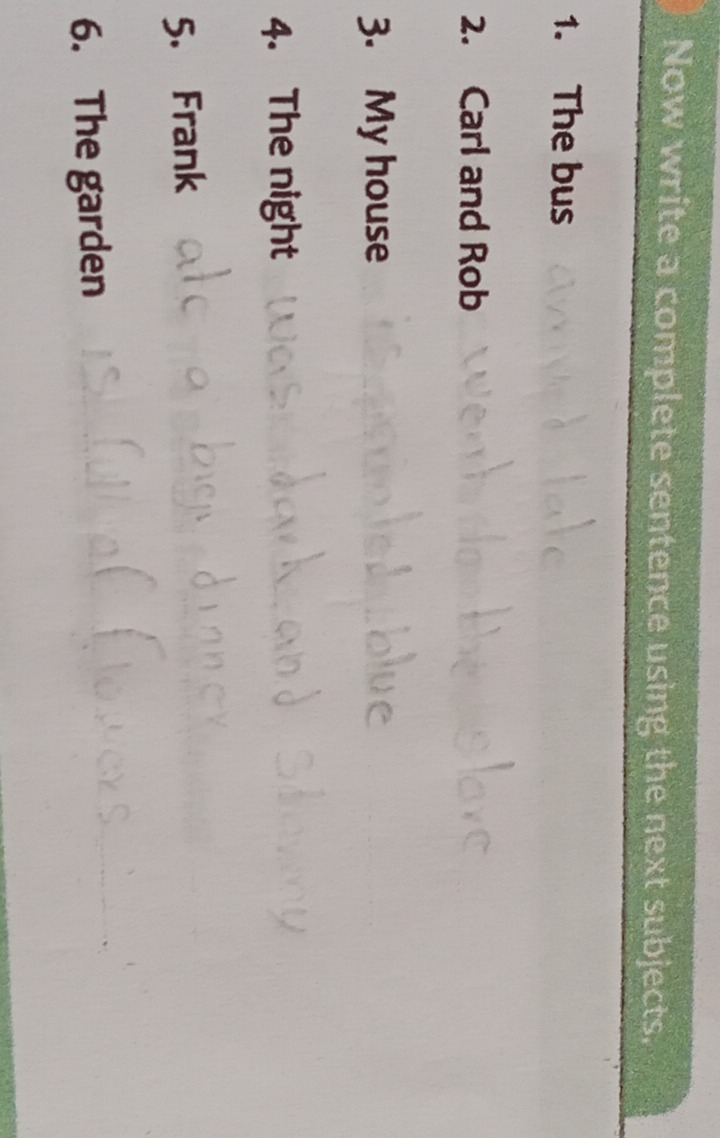 Now write a complete sentence using the next subjects.
1. The bus arrived late
2. Carl and Rob went to the store
3. My house is painted blue
4. The night was dark and stormy
5. Frank ate a big dinner
6. The garden is full of flowers